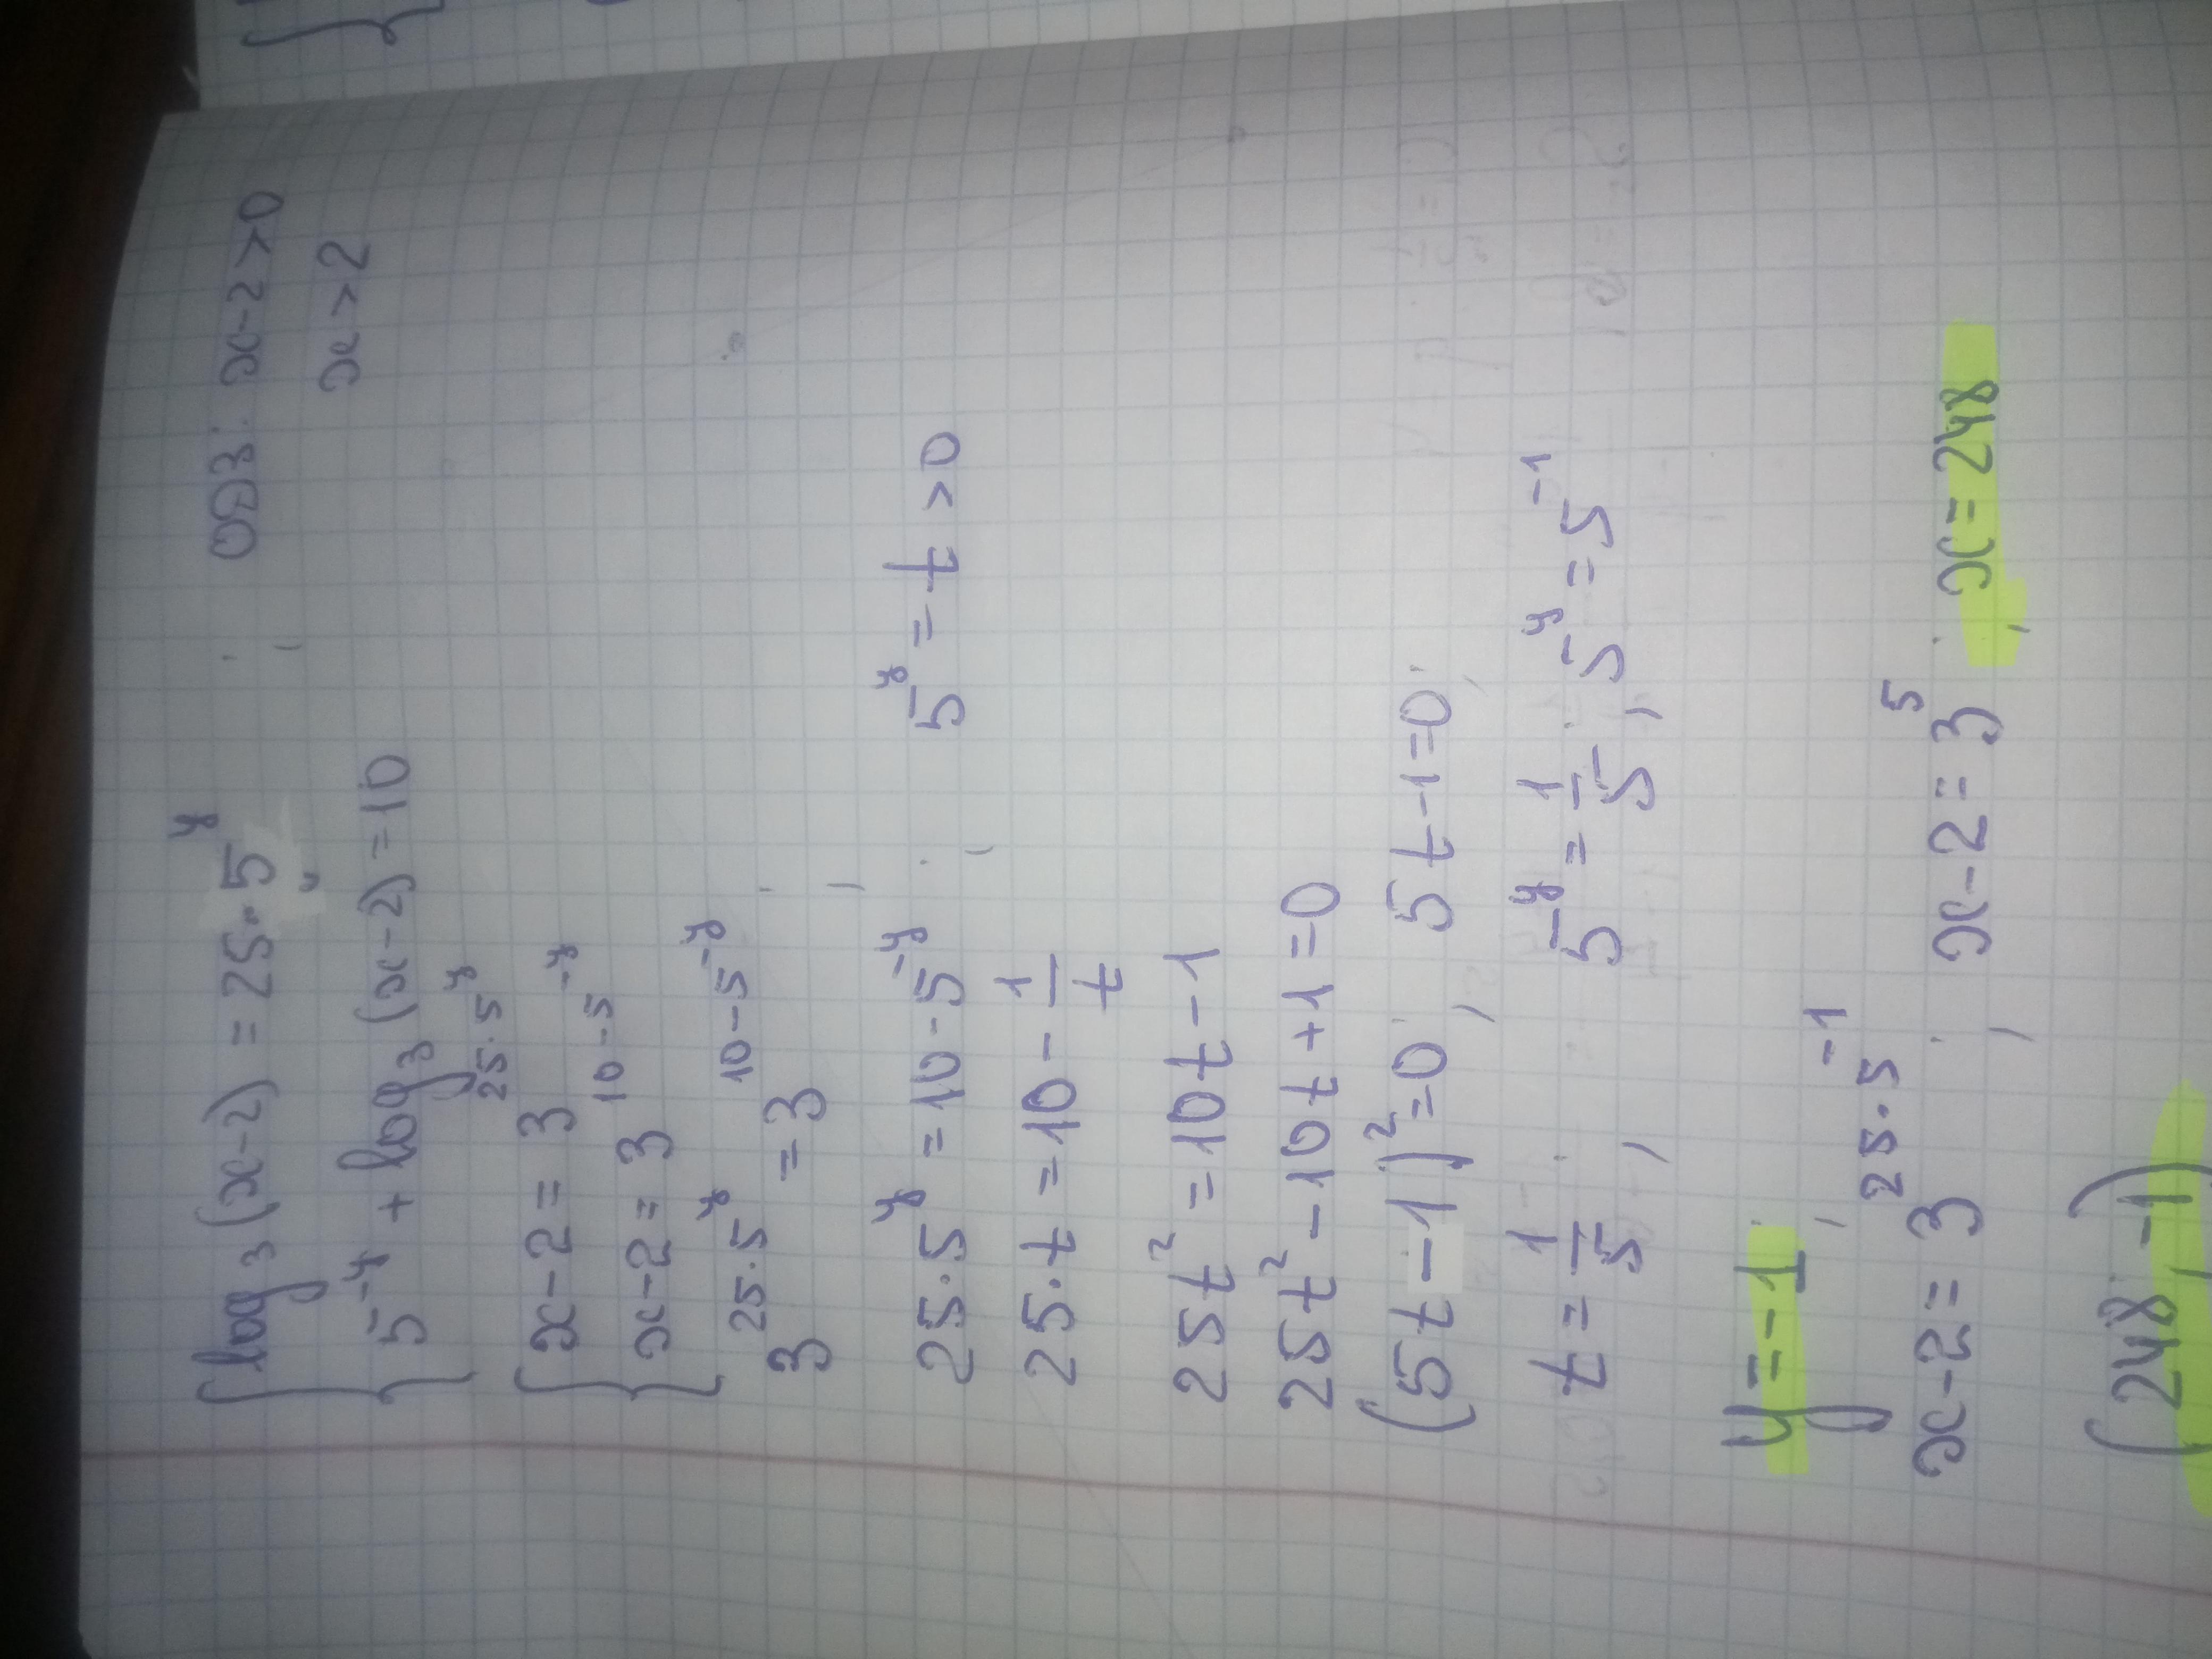 log₃(x-2) = 25·5^y ; ОДЗ: x-2>0
5^-y + log₃(x-2) = 10 x>2
x-2 = 3^25·5^y
x-2 = 3^10-5^-y
3^25·5^y = 3^10-5^-y ;
25·5^y = 10-5^-y ; 5^y = t >0
25·t = 10 - 1/t
25t² = 10t - 1
25t² - 10t + 1 = 0
(5t-1)² = 0 ; 5t-1=0 ;
t = 1/5 ; 5^y = 1/5 ; 5^y = 5^-1
y = -1 ;
x-2 = 3^25·5^-1 ; x-2 = 3^5 ; x = 248
(248, -1)